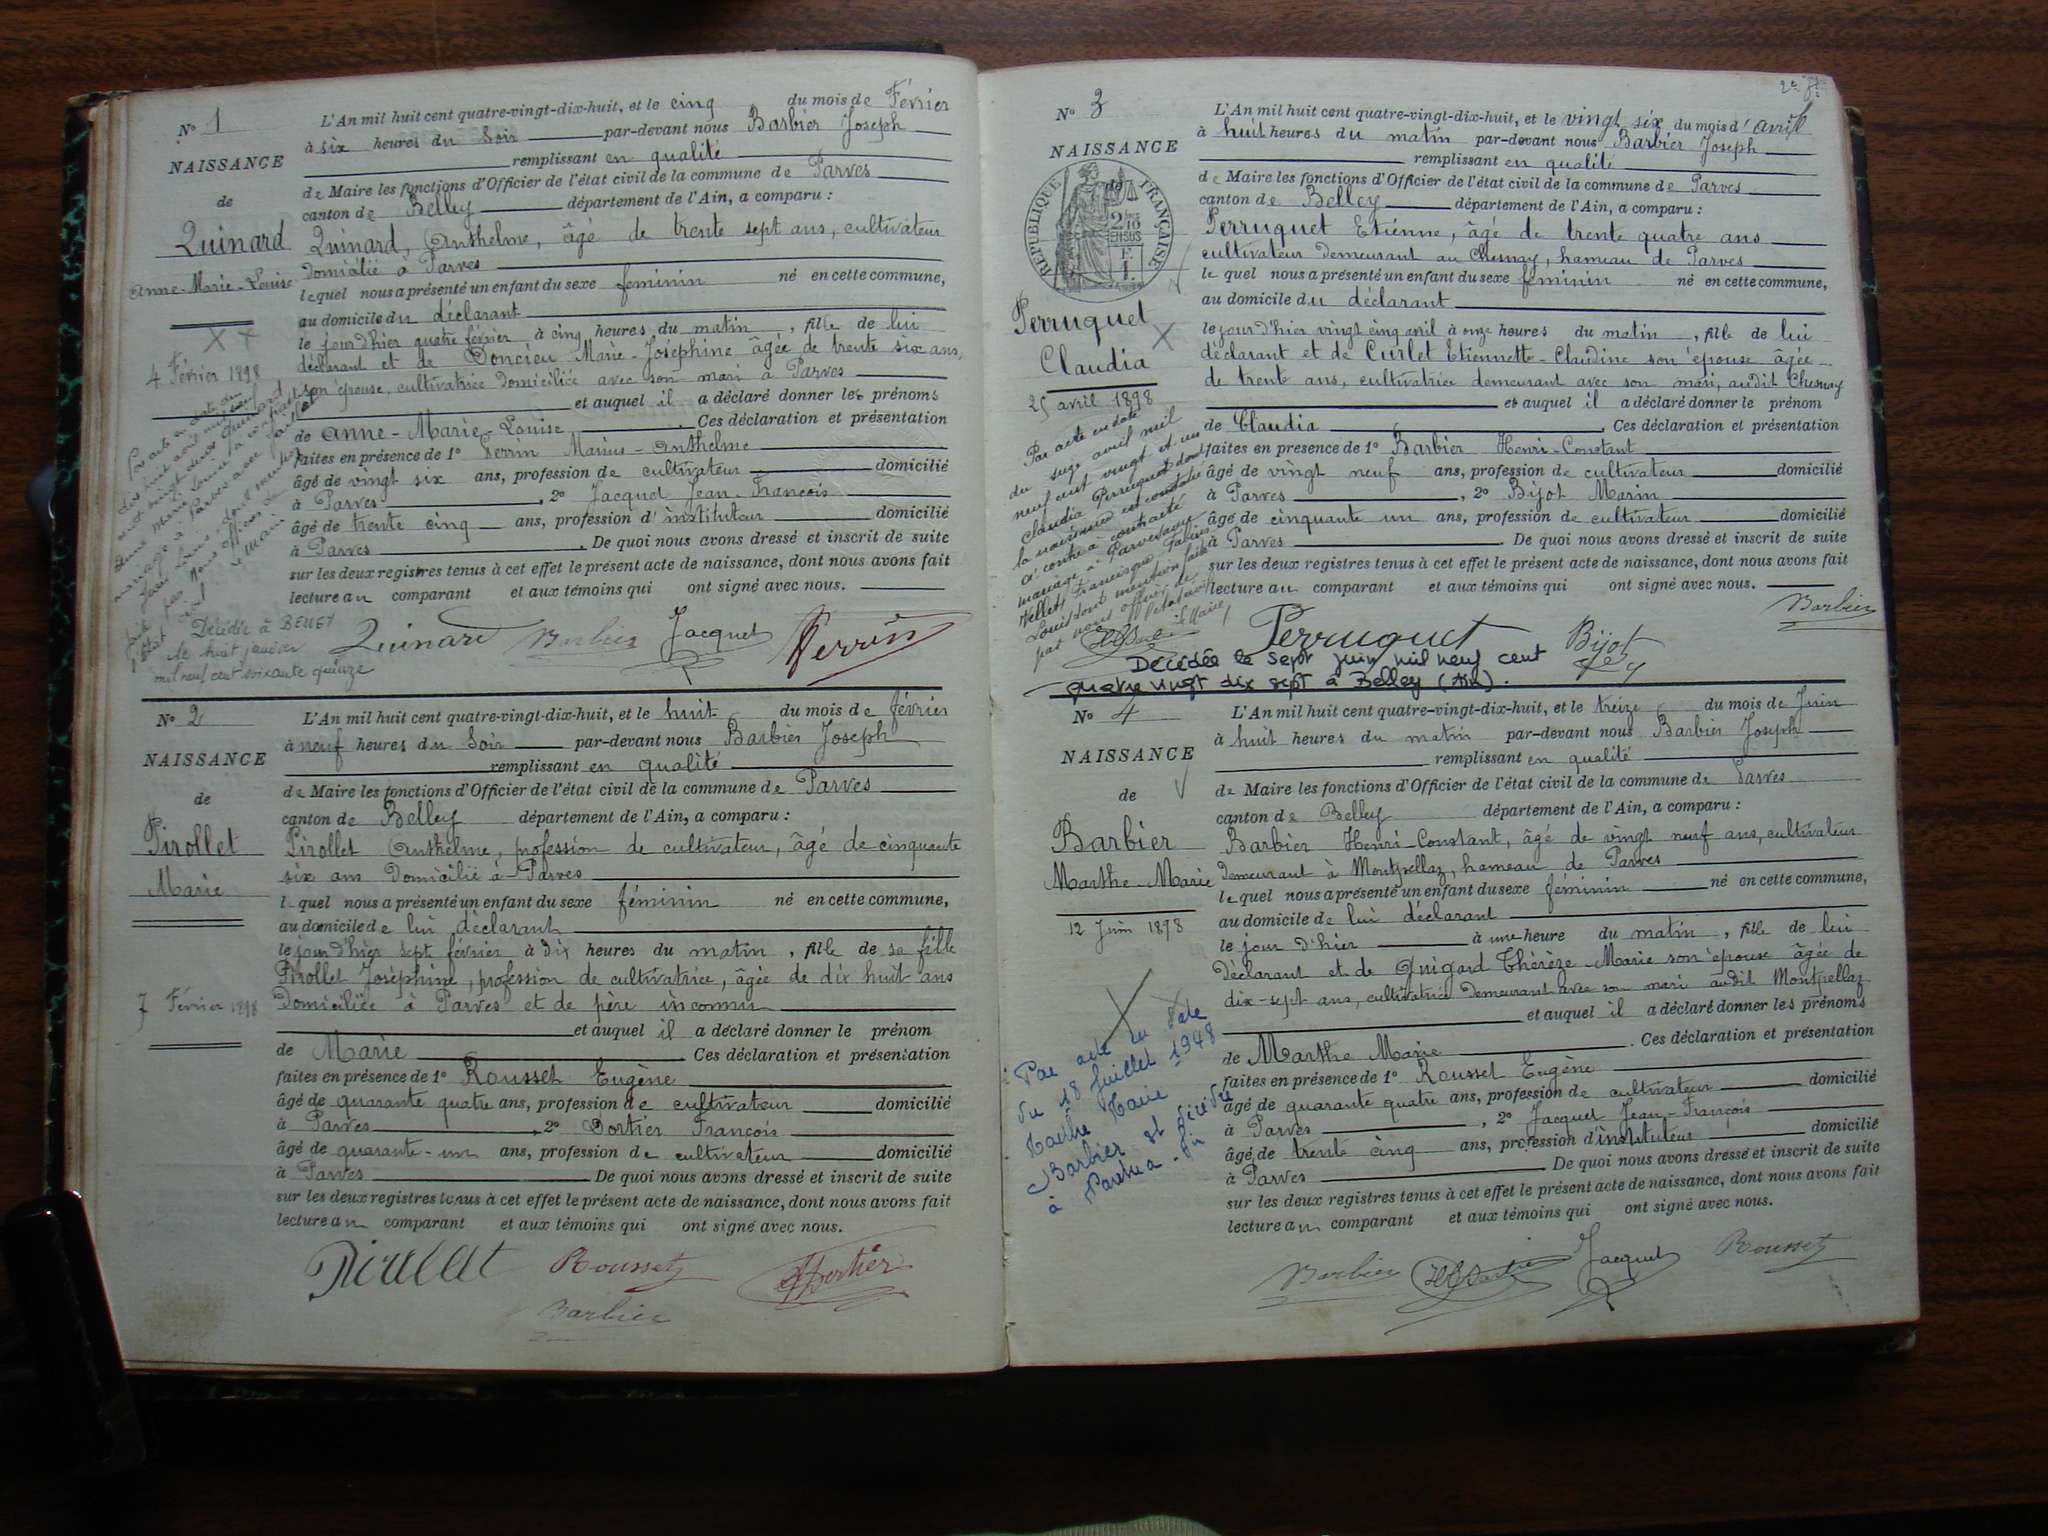 N° 1
NAISSANCE
de
Quinard
Anne-Marie-Louise
4 Février 1898
L'An mil huit cent quatre-vingt-dix-huit, et le cinq du mois de Février
à six heures du Soir par-devant nous Barbier Joseph
remplissant en qualité
de Maire les fonctions d'Officier de l'état civil de la commune de Parves
canton de Belley département de l'Ain, a comparu :
Quinard, Anthelme, âgé de trente sept ans, cultivateur
domicilié à Parves
lequel nous a présenté un enfant du sexe féminin né en cette commune,
au domicile du déclarant
le jour d'hier quatre février à cinq heures du matin, fille de lui
déclarant et de Doncieu Marie-Joséphine âgée de trente six ans,
son épouse, cultivatrice domiciliée avec son mari à Parves
et auquel il a déclaré donner les prénoms
de Anne-Marie-Louise. Ces déclaration et présentation
faites en présence de 1° Perrin Marius-Anthelme
âgé de vingt six ans, profession de cultivateur domicilié
à Parves, 2° Jacquet Jean-François
âgé de trente cinq ans, profession d'instituteur domicilié
à Parves. De quoi nous avons dressé et inscrit de suite
sur les deux registres tenus à cet effet le présent acte de naissance, dont nous avons fait
lecture au comparant et aux témoins qui ont signé avec nous.
Quinard Barbier Jacquet Perrin
Décédée à BELLEY
le huit janvier
mil neuf cent soixante quinze
N° 2
NAISSANCE
de
Pirollet
Marie
7 Février 1898
L'An mil huit cent quatre-vingt-dix-huit, et le huit du mois de février
à neuf heures du Soir par-devant nous Barbier Joseph
remplissant en qualité
de Maire les fonctions d'Officier de l'état civil de la commune de Parves
canton de Belley département de l'Ain, a comparu :
Pirollet Anthelme, profession de cultivateur, âgé de cinquante
six ans domicilié à Parves
lequel nous a présenté un enfant du sexe féminin né en cette commune,
au domicile de lui déclarant
le jour d'hier sept février à dix heures du matin, fille de sa fille
Pirollet Joséphine, profession de cultivatrice, âgée de dix huit ans
Domiciliée à Parves et de père inconnu
et auquel il a déclaré donner le prénom
de Marie Ces déclaration et présentation
faites en présence de 1° Rousset Eugène
âgé de quarante quatre ans, profession de cultivateur domicilié
à Parves, 2° Dortier François
âgé de quarante-un ans, profession de cultivateur domicilié
à Parves De quoi nous avons dressé et inscrit de suite
sur les deux registres tenus à cet effet le présent acte de naissance, dont nous avons fait
lecture au comparant et aux témoins qui ont signé avec nous.
Rousset Dortier
Barbier
N° 3
NAISSANCE
RÉPUBLIQUE FRANÇAISE
Perruquet
Claudia
25 avril 1898
L'An mil huit cent quatre-vingt-dix-huit, et le vingt six du mois d'avril
à huit heures du matin par-devant nous Barbier Joseph
remplissant en qualité
de Maire les fonctions d'Officier de l'état civil de la commune de Parves
canton de Belley département de l'Ain, a comparu :
Perruquet Etienne, âgé de trente quatre ans
cultivateur demeurant au Chesnay, hameau de Parves
lequel nous a présenté un enfant du sexe féminin né en cette commune,
au domicile du déclarant
le jour d'hier vingt cinq avril à onze heures du matin, fille de lui
déclarant et de Curlet Etiennette-Claudine son épouse âgée
de trente ans, cultivatrice demeurant avec son mari, audit Chesnay
et auquel il a déclaré donner le prénom
de Claudia. Ces déclaration et présentation
faites en presence de 1° Barbier Henri-Constant
âgé de vingt neuf ans, profession de cultivateur domicilié
à Parves, 2° Bijot Marin
âgé de cinquante un ans, profession de cultivateur domicilié
à Parves. De quoi nous avons dressé et inscrit de suite
sur les deux registres tenus à cet effet le présent acte de naissance, dont nous avons fait
lecture au comparant et aux témoins qui ont signé avec nous.
Par acte en date
du seize avril mil
neuf cent vingt et un
Claudia Perruquet dont
la naissance est constatée
ci contre a contracté
mariage à Parves avec
par nous officier de
Perruquet Bijot Barbier
Décédée le sept juin mil neuf cent
quatre vingt dix sept à Belley (Ain).
N° 4
NAISSANCE
de
Barbier
Marthe-Marie
12 Juin 1898
L'An mil huit cent quatre-vingt-dix-huit, et le treize du mois de Juin
à huit heures du matin par-devant nous Barbier Joseph
remplissant en qualité
de Maire les fonctions d'Officier de l'état civil de la commune de Parves
canton de Belley département de l'Ain, a comparu :
Barbier Henri-Constant, âgé de vingt neuf ans, cultivateur
demeurant à Montpellaz, hameau de Parves
lequel nous a présenté un enfant du sexe féminin né en cette commune,
au domicile de lui déclarant
le jour d'hier à une heure du matin, fille de lui
Déclarant et de Guigard Thérèze-Marie son épouse âgée de
dix-sept ans, cultivatrice demeurant avec son mari audit Montpellaz
et auquel il a déclaré donner les prénoms
de Marthe Marie. Ces déclaration et présentation
faites en présence de 1° Rousset Eugène
âgé de quarante quatre ans, profession de cultivateur domicilié
à Parves, 2° Jacquet Jean-François
âgé de trente cinq ans, profession d'instituteur domicilié
à Parves. De quoi nous avons dressé et inscrit de suite
sur les deux registres tenus à cet effet le présent acte de naissance, dont nous avons fait
lecture au comparant et aux témoins qui ont signé avec nous.
Par acte en date
du 18 juillet 1948
Marthe Marie
Barbier est décédée
à
Barbier Jacquet Rousset